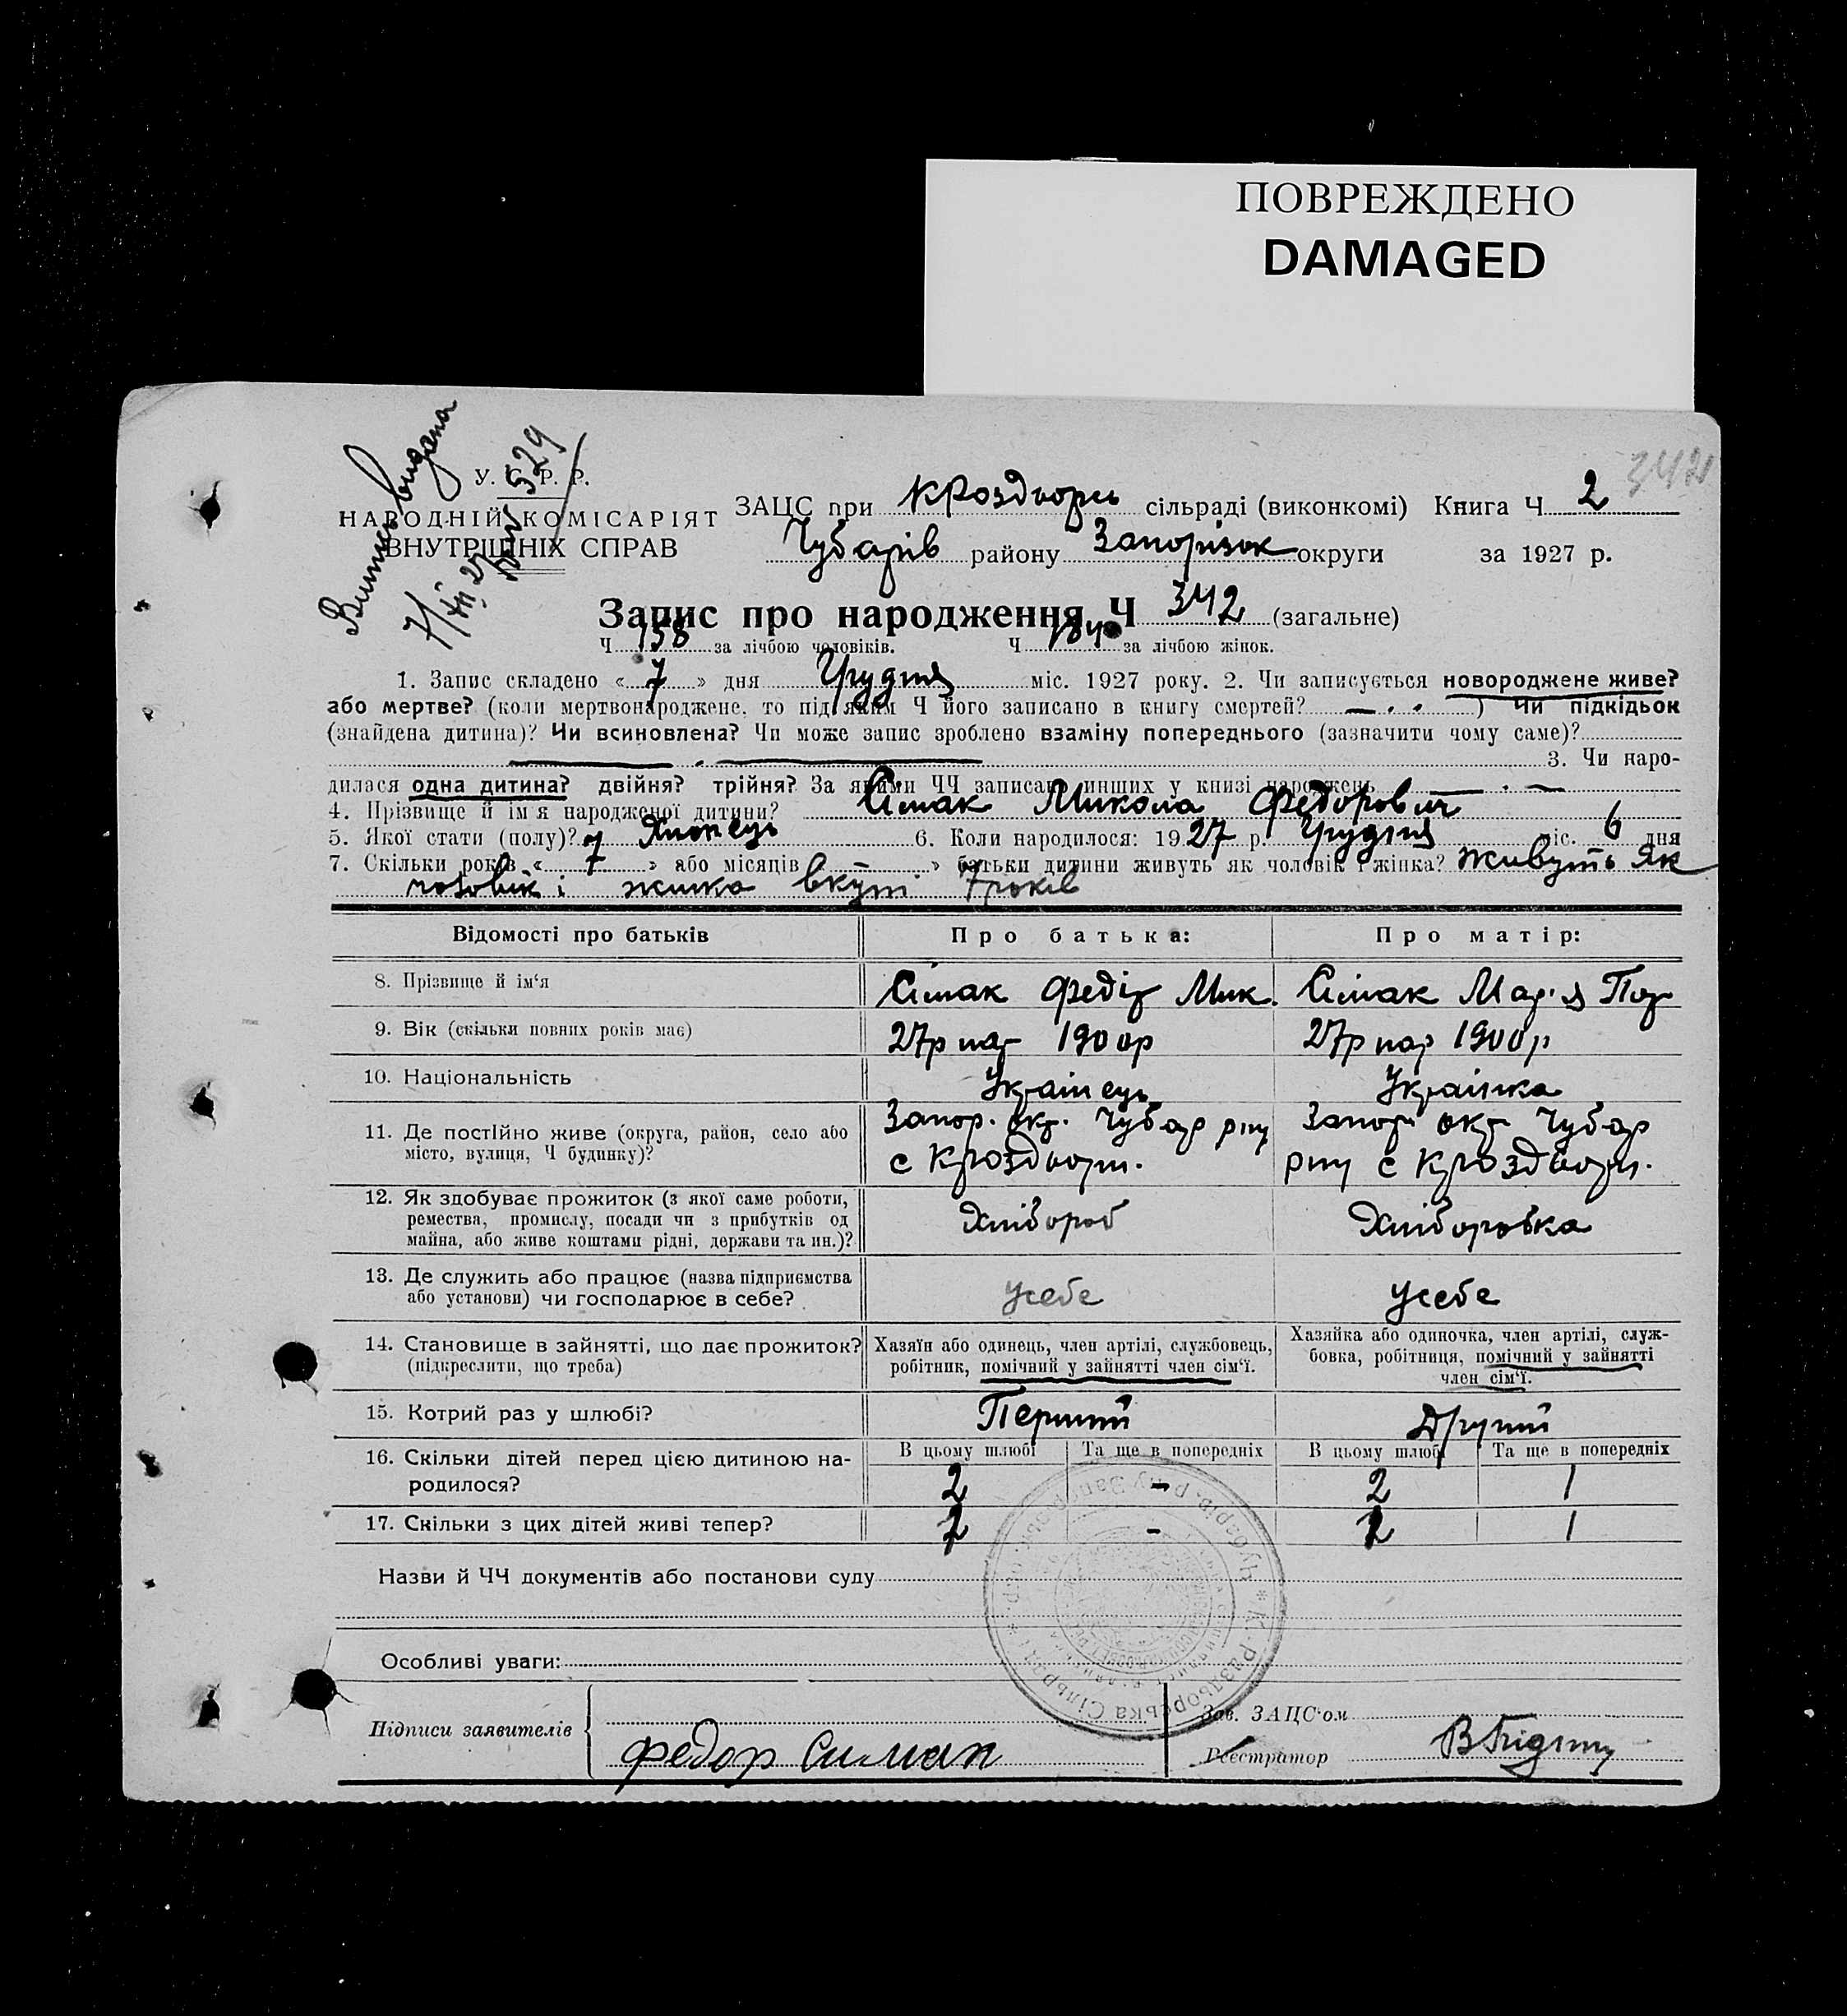 ПОВРЕЖДЕНО
DAMAGED
342
Витяг видана
7/XII 27
529
У. С. Р. Р.
НАРОДНІЙ КОМІСАРІЯТ
ВНУТРІШНІХ СПРАВ
ЗАЦС при КРоздворсь сільраді (виконкомі) Книга Ч 2
Чубарів району Запорізок округи за 1927 р.
Запис про народження Ч 342 (загальне)
Ч 158 за лічбою чоловіків. Ч 184 за лічбою жінок.
1. Запис складено «7» дня Грудня міс. 1927 року. 2. Чи записується новороджене живе?
або мертве? (коли мертвонароджене, то під яким Ч його записано в книгу смертей? — ) Чи підкідьок
(знайдена дитина)? Чи всиновлена? Чи може запис зроблено взаміну попереднього (зазначити чому саме)?
3. Чи наро-
дилася одна дитина? двійня? трійня? За якими ЧЧ записано инших у книзі народжень —
4. Прізвище й ім'я народженої дитини? Сімак Микола Федорович
5. Якої стати (полу)? Хлопець 6. Коли народилося: 1927 р. Грудня міс. 6 дня
7. Скільки років «7» або місяців – » батьки дитини живуть як чоловік і жінка? живуть як
чоловік і жинка вкупі 7років
Відомості про батьків Про батька: Про матір:
8. Прізвище й ім'я Сімак Федір Мик. Сімак Мар'я Пор
9. Вік (скільки повних років має) 27р нар 1900р 27р нар 1900р
10. Національність Українець Українка
11. Де постійно живе (округа, район, село або місто, вулиця, Ч будинку)? Запор. окр. Чубар рну Запор окр Чубар
с Кроздворн. рну с Кроздворн.
12. Як здобуває прожиток (з якої саме роботи,
ремества, промислу, посади чи з прибутків од
майна, або живе коштами рідні, держави та ин.)? Хлібороб Хліборобка
13. Де служить або працює (назва підприємства
або установи) чи господарює в себе? Усебе Усебе
14. Становище в зайнятті, що дає прожиток?
(підкреслити, що треба)
Хазяїн або одинець, член артілі, службовець,
робітник, помічний у зайнятті член сім'ї.
Хазяйка або одиночка, член артілі, служ-
бовка, робітниця, помічний у зайнятті
член сім'ї.
15. Котрий раз у шлюбі? Перший Другий
В цьому шлюбі Та ще в попередніх В цьому шлюбі Та ще в попередніх
16. Скільки дітей перед цією дитиною на-
родилося? 2 - 2 1
17. Скільки з цих дітей живі тепер? 2 - 2 1
Назви й ЧЧ документів або постанови суду
Особливі уваги:
Підписи заявителів Федор Симак
Зав. ЗАЦС'ом
Реєстратор